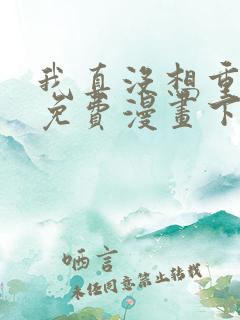 我真没想重
免費漫畫下
晒言
未经同意禁止转载